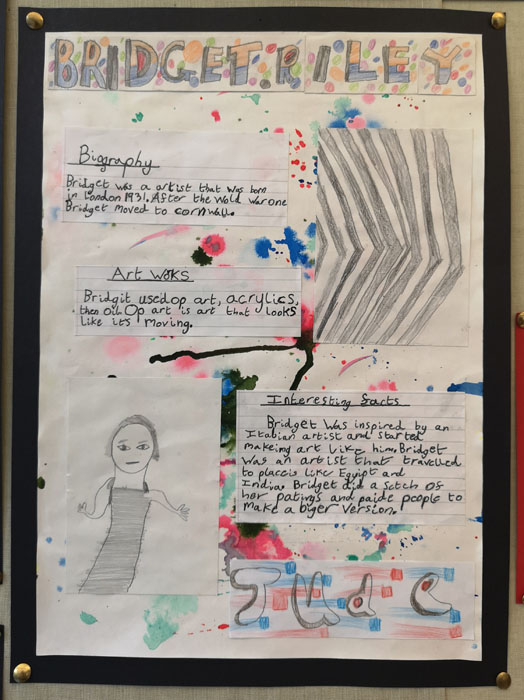 BRIDGET.RILEY
Biography
Bridget was a artist that was born
in London 1931. After the Wold War one
Bridget moved to cornwall.
Art woks
Bridgit used op art, acrylics,
then oil. Op art is art that looks
like it's moving.
Interesting facts
Bridget was inspired by an
Itabian artist and started
makeing art like him. Bridget
was an artist that travelled
to placeis like Egyipt and
India. Bridget did a Setch of
her patings and paide people to
make a biger version.
Jude